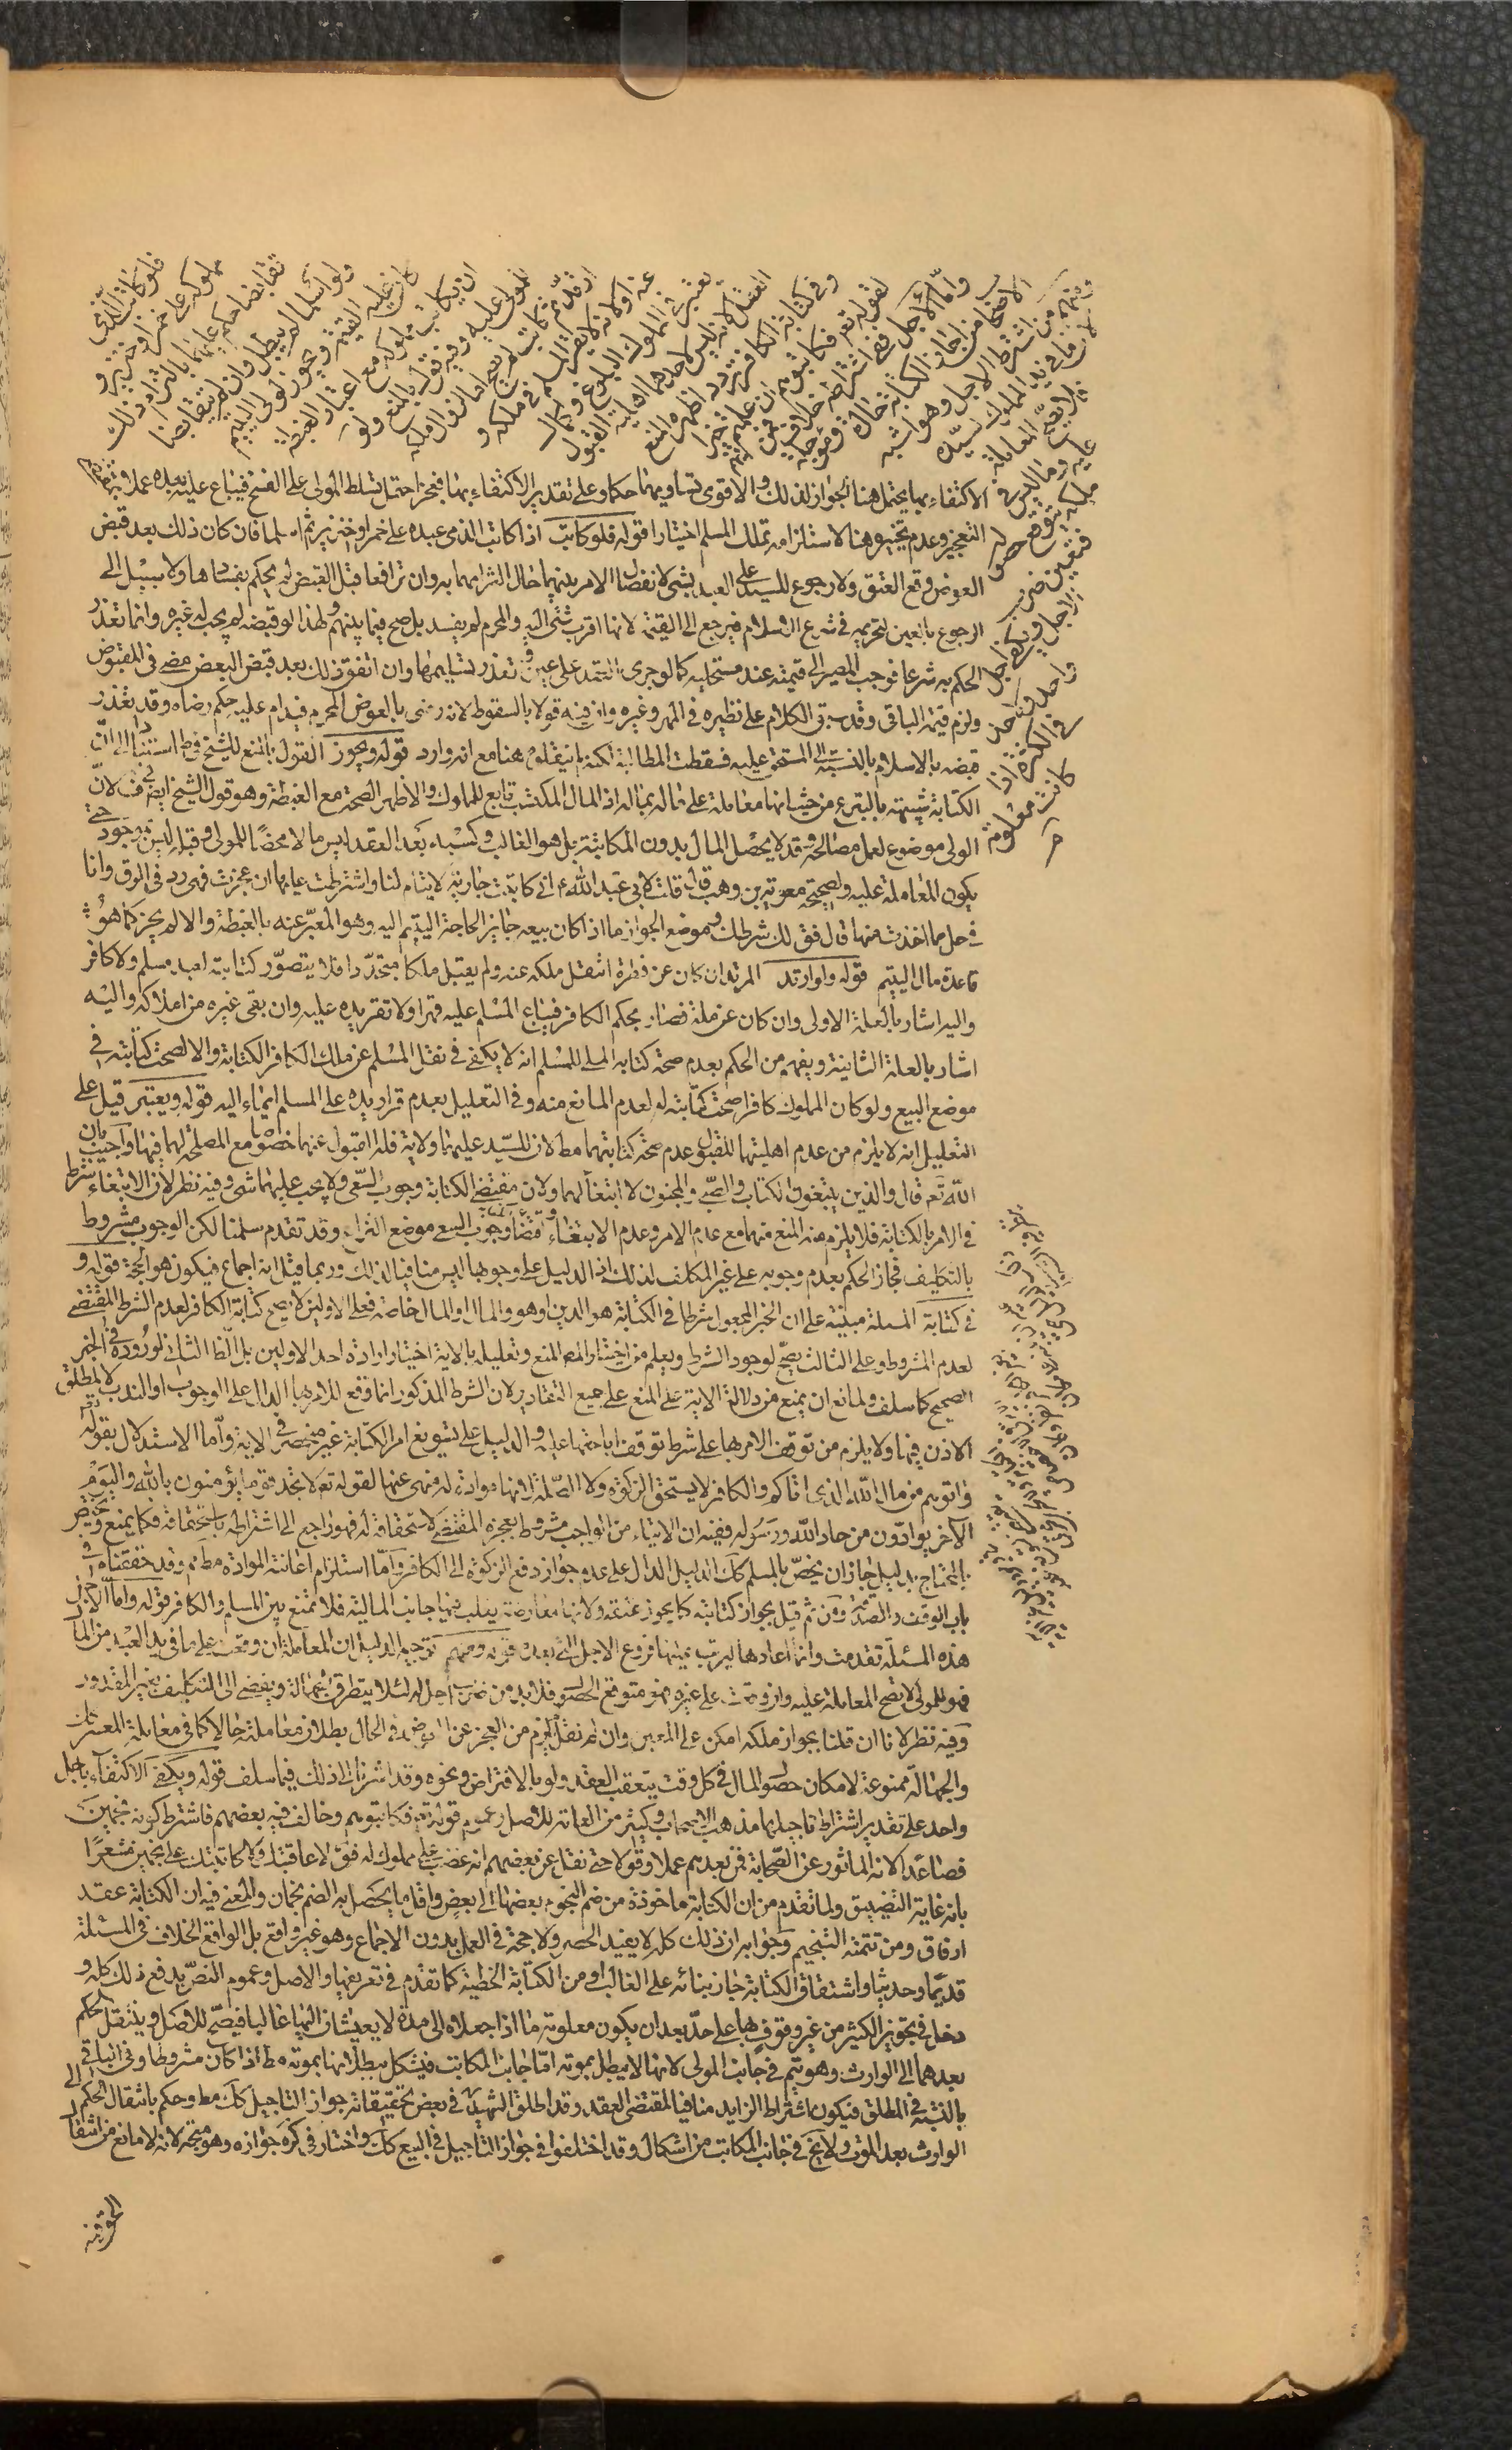 فلو كاتب الذمي
مملوكه على خمر او خنزير و
تقابضا حكم عليهما بالتزام ذلك
ولو اسلما لم يبطل وان لم يتقابضا
كان عليه القيمة ويجوز لولي اليتيم
ان يكاتب مملوكه مع اعتبار الغبطة
للمولى عليه وفيه قول بالمنع ولو
ارتد ثم كاتب لم يصح اما لزوال ملكه
عنه او لانه لا يقر المسلم في ملكه و
يعتبر في المملوك البلوغ وكمال
العقل لانه ليس لاحدهما اهلية القبول
وفي كتابة الكافر تردد اظهره المنع
لقوله تعه فكاتبوهم ان علمتم فيهم خيرا
واما الاجل ففي اشتراطه خلاف فمن
الاصحاب من اجاز الكتابة حالة ومؤجلة
ومنهم من اشترط الاجل وهو اشبه
لان ما في يد المملوك لسيده
فلا يصح المعاملة
عليه وما ليس في
ملكه يتوقع حصوله
فتعين ضرب
الاجل ويكفي اجل
واحد ولا حد
في الكثرة اذا
كانت معلومة
الاكتفاء بها يحتمل هنا الجواز لذلك والاقوى تساويهما حكما وعلى تقدير الاكتفاء بها فعجز احتمل تسلط المولى على الفسخ فيباع عليه بعده عملا بمقتضى
التعجيز وعدم تخييره هنا لاستلزامه تملك المسلم اختيارا قوله فلو كاتب اذا كاتب الذمي عبده على خمر او خنزير ثم اسلما فان كان ذلك بعد قبض
العوض وقع العتق ولا رجوع للسيد على العبد بشي لانفصال الامر بينهما حال التزامهما به وان ترافعا قبل القبض لم يحكم بفسادها ولا سبيل الى
الرجوع بالعين لتحريمه في شرع الاسلام فيرجع الى القيمة لانها اقرب شي اليه والمحرم لم يفسد بل صح فيما بينهم ولهذا لو قبضه لم يجب له غيره وانما تعذر
الحكم به شرعا فوجب المصير الى قيمته عند مستحليه كما لو جرى العقد على عين وتعذر تسليمها وان اتفق ذلك بعد قبض البعض مضى في المقبوض
ولزم قيمة الباقي وقد سبق الكلام على نظيره في المهر وغيره وان فيه قولا بالسقوط لانه رضى بالعوض المحرم فيدام عليه حكم رضاه وقد تعذر
قبضه بالاسلام بالنسبة الى المستحق عليه فسقطت المطالبة لكنه لم ينقلوه هنا مع انه وارد قوله ويجوز القول بالمنع للشيخ في ط استنادا الى ان
الكتابة شبيهة بالتبرع من حيث انها معاملة على ماله بماله اذ المال المكتسب تابع للمملوك والاظهر الصحة مع الغبطة وهو قول الشيخ ايضا في ف لان
الولي موضوع لعمل مصالحه وقد لا يحصل المال بدون المكاتبة بل هو الغالب وكسبه بعد العقد ليس مالا محضا للمولى وقبله ليس بموجود حتى
يكون المعاملة عليه ولصحيحة معوية بن وهب قال قلت لابي عبد الله ع اني كاتبت جارية لايتام لنا واشترطت عليها ان عجزت فهي رد في الرق وانا
في حل مما اخذت منها قال فق لك شرطك وموضع الجواز ما اذا كان بيعه جايز الحاجة اليتيم اليه وهو المعبر عنه بالغبطة والا لم يجز كما هو
قاعدة مال اليتيم قوله ولو ارتد المرتد ان كان عن فطرة انتقل ملكه عنه ولم يقبل ملكا متجددا فلا يتصور كتابته لعبد مسلم ولا كافر
واليه اشار بالعلة الاولى وان كان عن ملة فصار بحكم الكافر فيباع المسلم عليه قهرا ولا تقر يده عليه وان بقى غيره من املاكه واليه
اشار بالعلة الثانية ويفهم من الحكم بعدم صحة كتابه الملى للمسلم انه لا يكفى في نقل المسلم عن ملك الكافر الكتابة والا لصحت كتابته في
موضع البيع ولو كان المملوك كافرا صحت كتابته له لعدم المانع منه وفي التعليل بعدم قرار يده على المسلم ايماء اليه قوله ويعتبر قيل على
التعليل انه لا يلزم من عدم اهليتها للقبول عدم صحة كتابتهما مط لان للسيد عليهما ولاية فله القبول عنهما خصوصا مع المصلحة لهما فيها واجيب بان
الله تعه قال والذين يبتغون الكتاب والصبي والمجنون لا ابتغاء لهما ولان مقتضى الكتابة وجوب السعي ولا يجب عليهما شي وفيه نظر لان الابتغاء شرط
في الامر بالكتابة فلا يلزم منه المنع منها مع عدم الامر وعدم الابتغاء واقتضاء وجوب السعي موضع النزاع وقد تقدم سلمنا لكن الوجوب مشروط
بالتكليف فجاز الحكم بعدم وجوبه على غير المكلف لذلك اذ الدليل على وجوبها ليس منافيا لذلك وربما قيل انه اجماع فيكون هو الحجة قوله و
في كتابة المسئلة مبنية على ان الخير المجعول شرطا في الكتابة هو الدين او هو والمال او المال خاصة فعلى الاولين لا يصح كتابة الكافر لعدم الشرط المقتضى
لعدم المشروط وعلى الثالث يصح لوجود الشرط ويعلم من اختيار المصه المنع وتعليله بالاية اختيار ارادة احد الاولين بل الظ الثاني لوروده في الخبر
الصحيح كما سلف ولمانع ان يمنع من دلالة الاية على المنع على جميع التقادير لان الشرط المذكور انما وقع للامر بها الدال على الوجوب او الندب لا لمطلق
الاذن فيها ولا يلزم من توقف الامر بها على شرط توقف اباحتها عليه والدليل على تسويغ امر الكتابة غير منحصر في الاية واما الاستدلال بقوله تعه
واتوهم من مال الله الذي اتاكم والكافر لا يستحق الزكوة ولا الصلة لانها موادة له منهى عنها لقوله تعه لا تجد قوما يؤمنون بالله واليوم
الآخر يوادون من حاد الله ورسوله ففيه ان الايتاء من الواجب مشروط بعجزه المقتضى لاستحقاقه له فهو راجع الى اشتراطه باستحقاقه فكما يمنع ويختص
بالمحتاج بدليل جاز ان يخص بالمسلم كك الدليل الدال على عدم جواز دفع الزكوة الى الكافر واما استلزام اعانته الموادة مط فمم وقد حققناه في
باب الوقف والصدقة ومن ثم قيل بجواز كتابته كما يجوز عتقه ولانها معاوضة يغلب فيها جانب المالية فلا تمتنع بين المسلم والكافر قوله واما الاجل
هذه المسئلة تقدمت وانما اعادها ليرتب عليها فروع الاجل التي بعده قوله ومنهم توجيه الدليل ان المعاملة ان وقعت على ما في يد العبد من المال
فهو للمولى لا تصح المعاملة عليه وان وقعت على غيره فهو متوقع الحصول فلا بد من ضرب اجل له لئلا يتطرق الجهالة ويفضى الى التكليف بغير المقدور
وفيه نظر لانا ان قلنا بجواز ملكه امكن على المعين وان لم نقل لم يلزم من العجز عن العوض في الحال بطلان معاملته حالا كما في معاملة المعسر
والجهالة ممنوعة لامكان حصول المال في كل وقت يتعقب العقد ولو بالاقتراض ونحوه وقد اشرنا الى ذلك فيما سلف قوله ويكفى الاكتفاء باجل
واحد على تقدير اشتراط تاجيلها مذهب الاصحاب وكثير من العامة للاصل وعموم قوله تعه فكاتبوهم وخالف فيه بعضهم فاشترط كونه نجمين
فصاعدا لانه الماثور عن الصحابة فمن بعدهم عملا وقولا حتى نقل عن بعضهم انه غضب على مملوك له فق لاعاقبنك ولاكاتبنك على نجمين مشعرا
بانه غاية التضييق ولما تقدم من ان الكتابة ماخوذة من ضم النجوم بعضها الى بعض واقل ما يحصل به الضم نجمان والمعنى فيه ان الكتابة عقد
ارفاق ومن تتمته التنجيم وجوابه ان ذلك كله لا يفيد الحصر ولا حجة في العمل بدون الاجماع وهو غير واقع بل الواقع الخلاف في المسئلة
قديما وحديثا واشتقاق الكتابة جاز بنائه على الغالب او من الكتابة الخطية كما تقدم في تعريفها والاصل وعموم النص يدفع ذلك كله و
دخل في تجويز الكثير من غير وقوف بها على حد بعد ان يكون معلومة ما اذا جعلاه الى مدة لا يعيشان اليها غالبا فيصح للاصل وينتقل الحكم
بعدهما الى الوارث وهو يتم في جانب المولى لانها لا يبطل بموته اما جانب المكاتب فيشكل ببطلانها بموته مط اذا كان مشروطا وفي الباقي
بالنسبة في المطلق فيكون اشتراط الزايد منافيا لمقتضى العقد وقد اطلق الشهيد في بعض تحقيقاته جواز التاجيل كك مط وحكم بانتقال الحكم الى
الوارث بعد الموت ولا يخ في جانب المكاتب من اشكال وقد اختلفوا في جواز التاجيل في البيع كك واختار في كره جوازه وهو متجه لانه لا مانع من انتقال